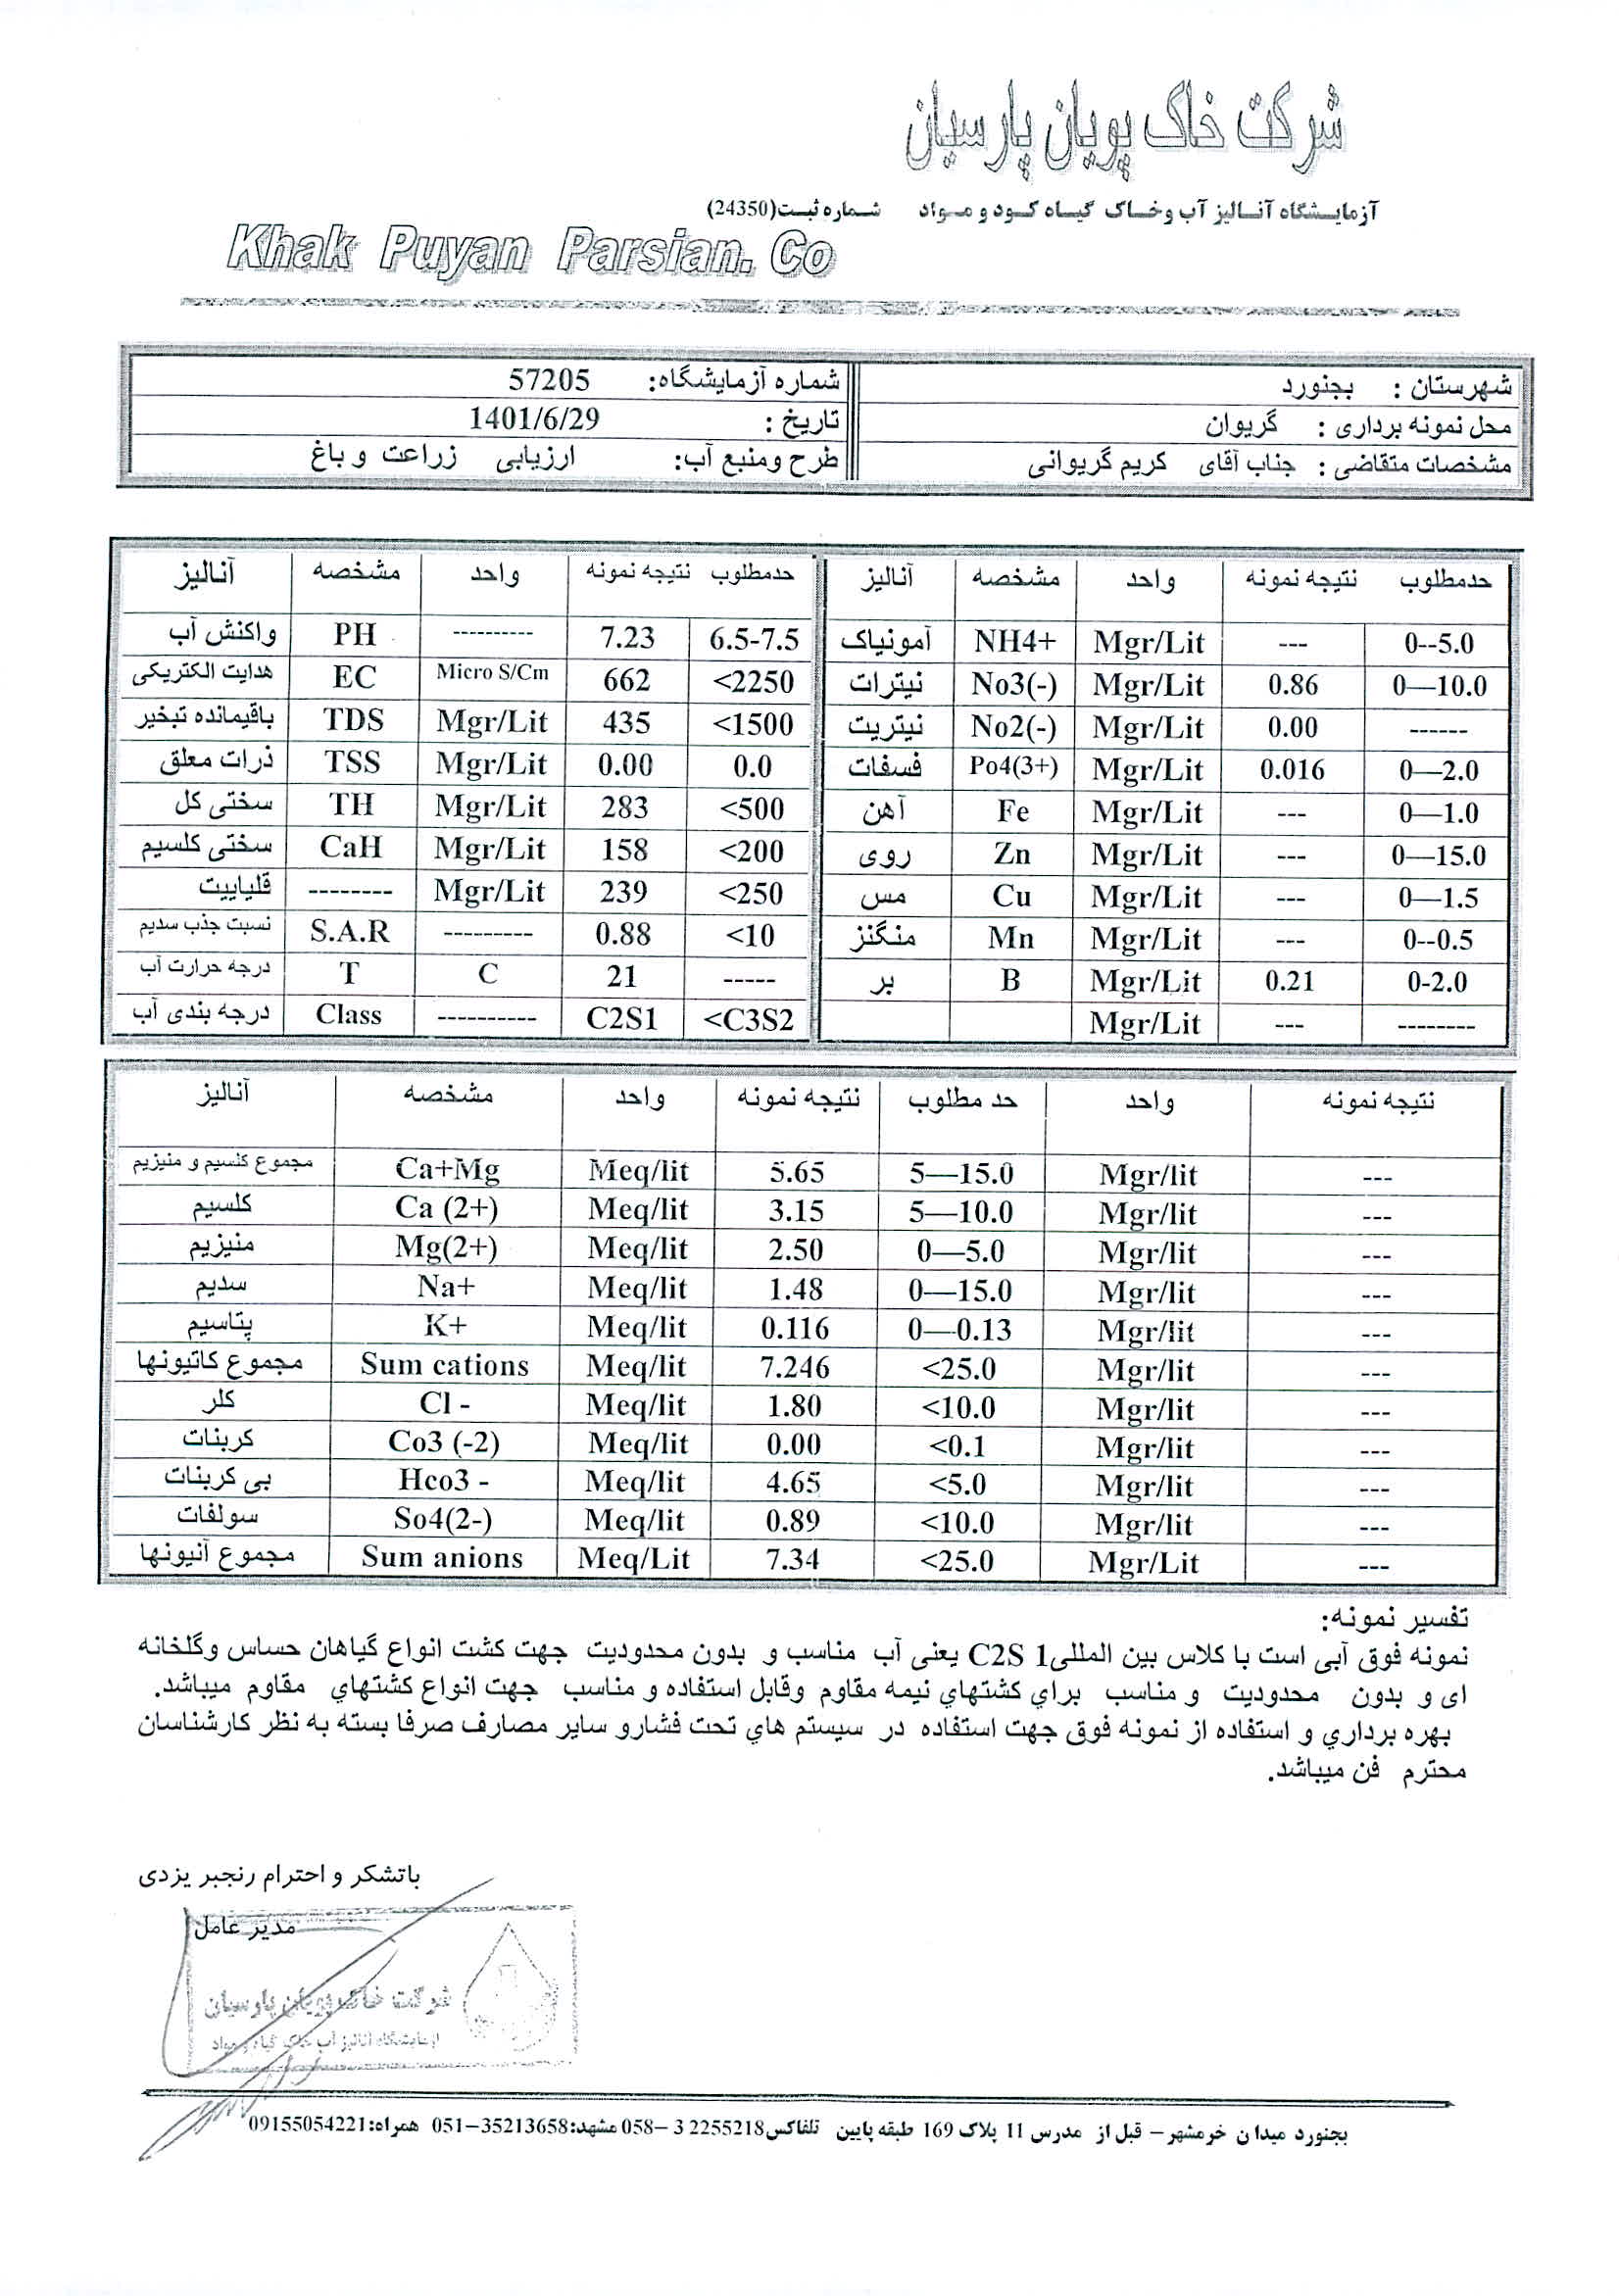 شرکت خاک پویان پارسیان
آزمایشگاه آنالیز آب وخاک گیاه کود و مواد شماره ثبت(24350)
Khak Puyan Parsian. Co
شهرستان : بجنورد شماره آزمایشگاه: 57205
محل نمونه برداری : گریوان تاریخ : 1401/6/29
مشخصات متقاضی : جناب آقای کریم گریوانی طرح ومنبع آب: ارزیابی زراعت و باغ
آنالیز مشخصه واحد نتیجه نمونه حدمطلوب آنالیز مشخصه واحد نتیجه نمونه حدمطلوب
واکنش آب PH ---------- 7.23 6.5-7.5 آمونیاک NH4+ Mgr/Lit --- 0--5.0
هدایت الکتریکی EC Micro S/Cm 662 <2250 نیترات No3(-) Mgr/Lit 0.86 0—10.0
باقیمانده تبخیر TDS Mgr/Lit 435 <1500 نیتریت No2(-) Mgr/Lit 0.00 ------
ذرات معلق TSS Mgr/Lit 0.00 0.0 فسفات Po4(3+) Mgr/Lit 0.016 0—2.0
سختی کل TH Mgr/Lit 283 <500 آهن Fe Mgr/Lit --- 0—1.0
سختی کلسیم CaH Mgr/Lit 158 <200 روی Zn Mgr/Lit --- 0—15.0
قلیاییت -------- Mgr/Lit 239 <250 مس Cu Mgr/Lit --- 0—1.5
نسبت جذب سدیم S.A.R --------- 0.88 <10 منگنز Mn Mgr/Lit --- 0--0.5
درجه حرارت آب T C 21 ----- بر B Mgr/Lit 0.21 0-2.0
درجه بندی آب Class ---------- C2S1 <C3S2 Mgr/Lit --- --------
آنالیز مشخصه واحد نتیجه نمونه حد مطلوب واحد نتیجه نمونه
مجموع کلسیم و منیزیم Ca+Mg Meq/lit 5.65 5—15.0 Mgr/lit ---
کلسیم Ca (2+) Meq/lit 3.15 5—10.0 Mgr/lit ---
منیزیم Mg(2+) Meq/lit 2.50 0—5.0 Mgr/lit ---
سدیم Na+ Meq/lit 1.48 0—15.0 Mgr/lit ---
پتاسیم K+ Meq/lit 0.116 0—0.13 Mgr/lit ---
مجموع کاتیونها Sum cations Meq/lit 7.246 <25.0 Mgr/lit ---
کلر Cl - Meq/lit 1.80 <10.0 Mgr/lit ---
کربنات Co3 (-2) Meq/lit 0.00 <0.1 Mgr/lit ---
بی کربنات Hco3 - Meq/lit 4.65 <5.0 Mgr/lit ---
سولفات So4(2-) Meq/lit 0.89 <10.0 Mgr/lit ---
مجموع آنیونها Sum anions Meq/Lit 7.34 <25.0 Mgr/Lit ---
تفسیر نمونه:
نمونه فوق آبی است با کلاس بین المللیC2S 1 یعنی آب مناسب و بدون محدودیت جهت کشت انواع گیاهان حساس وگلخانه
ای و بدون محدودیت و مناسب براي کشتهاي نیمه مقاوم وقابل استفاده و مناسب جهت انواع کشتهاي مقاوم میباشد.
بهره برداري و استفاده از نمونه فوق جهت استفاده در سیستم هاي تحت فشارو سایر مصارف صرفا بسته به نظر کارشناسان
محترم فن میباشد.
باتشکر و احترام رنجبر یزدی
مدیر عامل
شرکت خاک پویان پارسیان
آزمایشگاه آنالیز آب خاک گیاه و مواد
بجنورد میدان خرمشهر – قبل از مدرس 11 پلاک 169 طبقه پایین تلفاکس2255218 3 –058 مشهد:35213658–051 همراه:09155054221